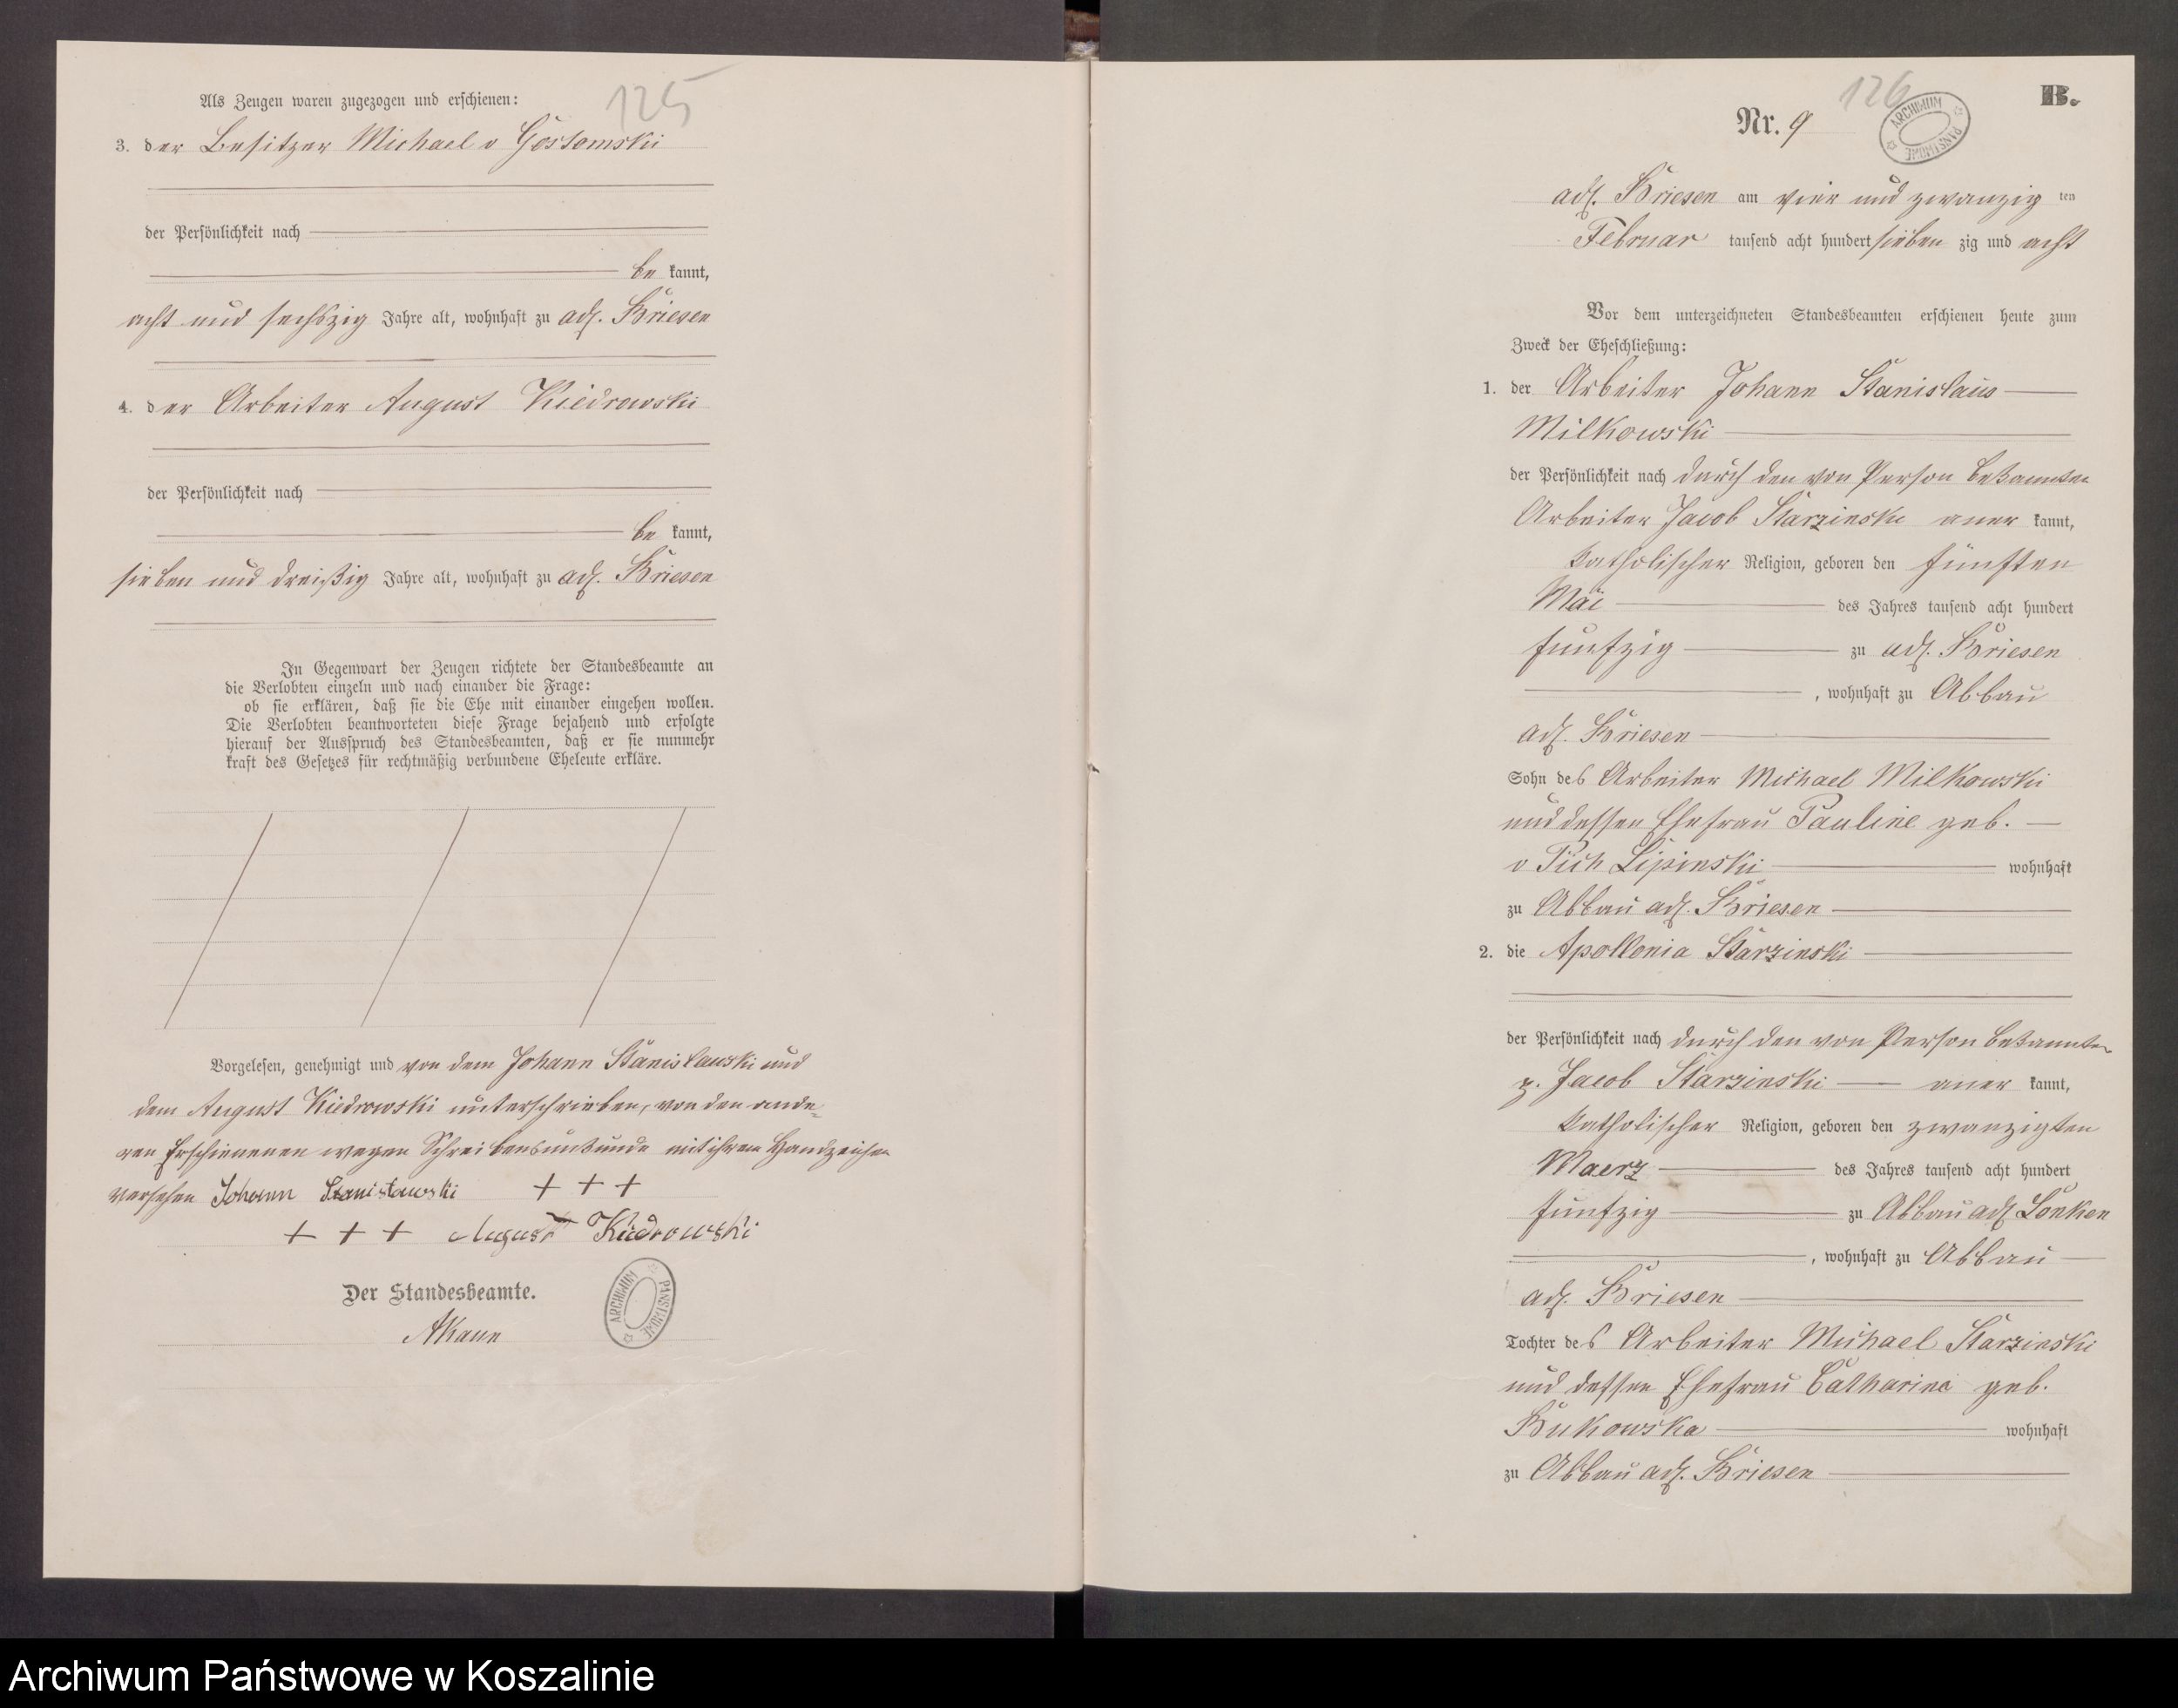 125
Als Zeugen waren zugezogen und erschienen:
3. der Besitzer Michael v Gostomski
der Persönlichkeit nach
be kannt,
acht und sechszig Jahre alt, wohnhaft zu adl. Briesen
4. der Arbeiter August Kiedrowski
der Persönlichkeit nach
be kannt,
sieben und dreißig Jahre alt, wohnhaft zu adl. Briesen
In Gegenwart der Zeugen richtete der Standesbeamte an
die Verlobten einzeln und nach einander die Frage:
ob sie erklären, daß sie die Ehe mit einander eingehen wollen.
Die Verlobten beantworteten diese Frage bejahend und erfolgte
hierauf der Ausspruch des Standesbeamten, daß er sie nunmehr
kraft des Gesetzes für rechtmäßig verbundene Eheleute erkläre.
Vorgelesen, genehmigt und von dem Johann Stanislawski und
dem August Kiedrowski unterschrieben, von den ande-
ren Erschienenen wegen Schreibensunkunde mit ihrem Handzeichen
versehen Johann Stanisławski + + +
+ + + August Kiedrowski
Der Standesbeamte.
ARCHIWUM PAŃSTWOWE
126
B.
Nr. 9
ARCHIWUM PAŃSTWOWE
adl. Briesen am vier und zwanzig ten
Februar tausend acht hundert sieben zig und acht
Vor dem unterzeichneten Standesbeamten erschienen heute zum
Zweck der Eheschließung:
1. der Arbeiter Johann Stanislaus
Milkowski
der Persönlichkeit nach durch den von Person bekannten
Arbeiter Jacob Starzinski aner kannt,
katholischer Religion, geboren den fünften
Mai des Jahres tausend acht hundert
funfzig zu adl. Briesen
, wohnhaft zu Abbau
adl. Briesen
Sohn des Arbeiter Michael Milkowski
und dessen Ehefrau Pauline geb.
v Pich Lipinski wohnhaft
zu Abbau adl. Briesen
2. die Apollonia Starzinski
der Persönlichkeit nach durch den von Person bekannten
p. Jacob Starzinski aner kannt,
katholischer Religion, geboren den zwanzigten
Maerz des Jahres tausend acht hundert
funfzig zu Abbau adl Lonken
, wohnhaft zu Abbau
adl. Briesen
Tochter des Arbeiter Michael Starzinski
und dessen Ehefrau Catharina geb.
Bukowska wohnhaft
zu Abbau adl. Briesen
Archiwum Państwowe w Koszalinie